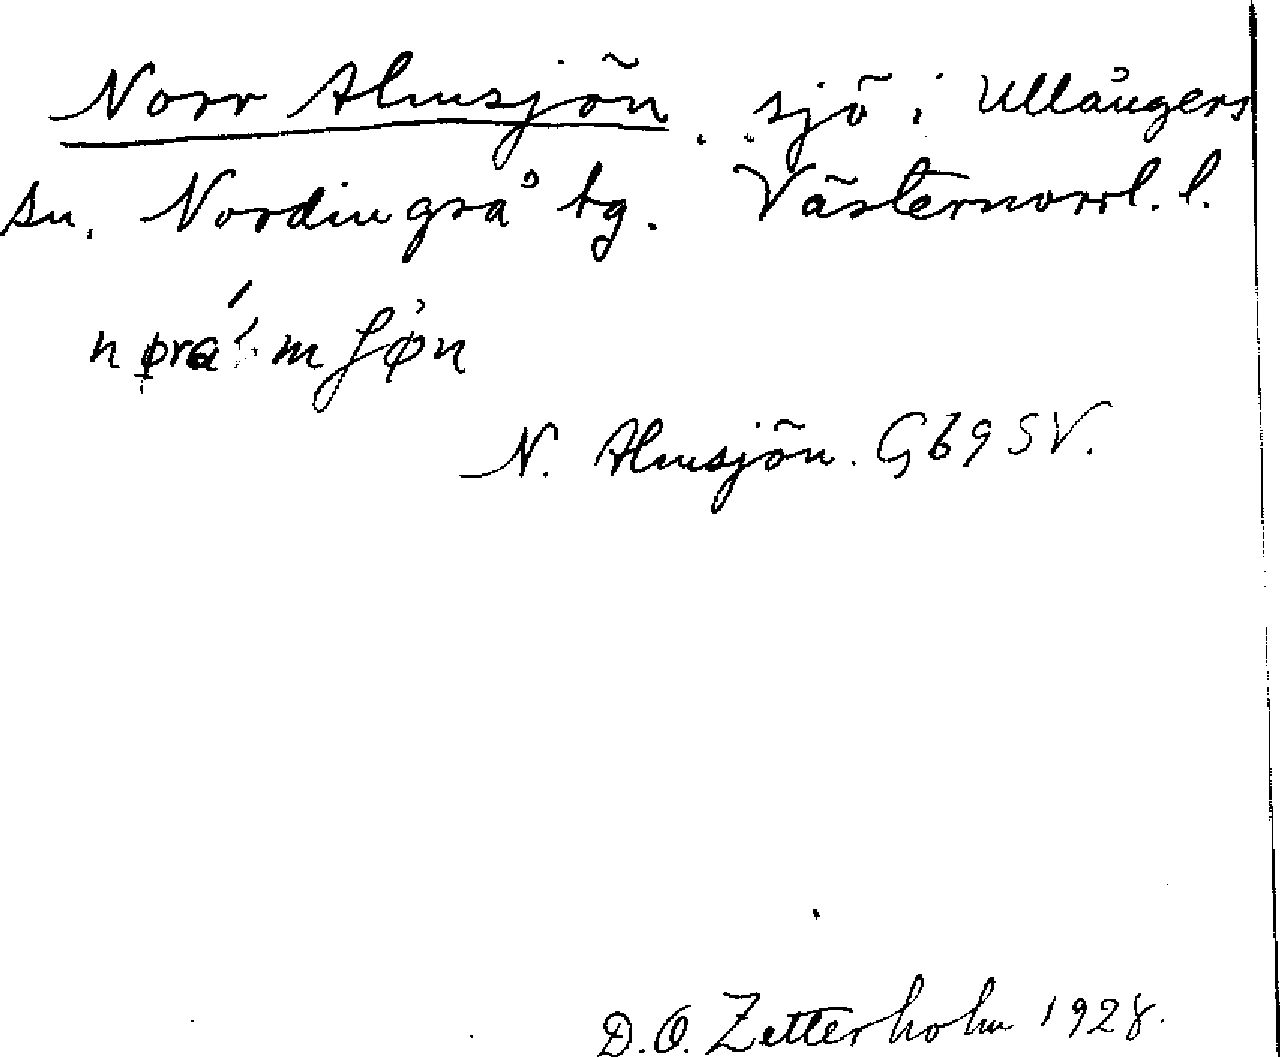 Norr Almsjön. sjö i Ullångers
sn. Nordingrå tg. Västernorrl. l.
N. Almsjön. G69 SV.
D.O. Zetterholm 1928.